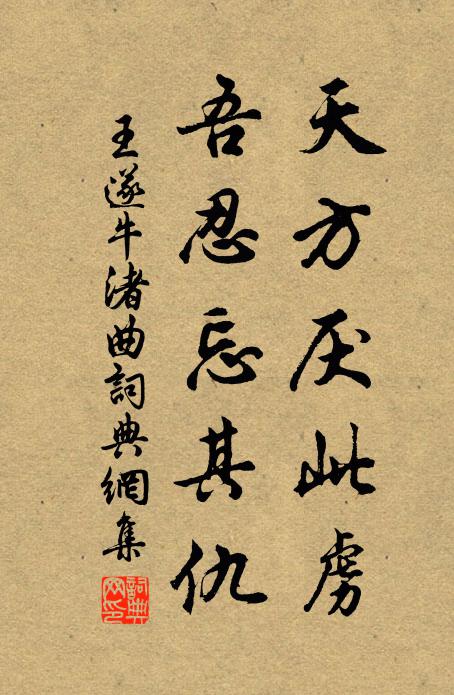 天方厌此虏
吾忍忘其仇
王遂牛渚曲詞典網集
詞典
网印